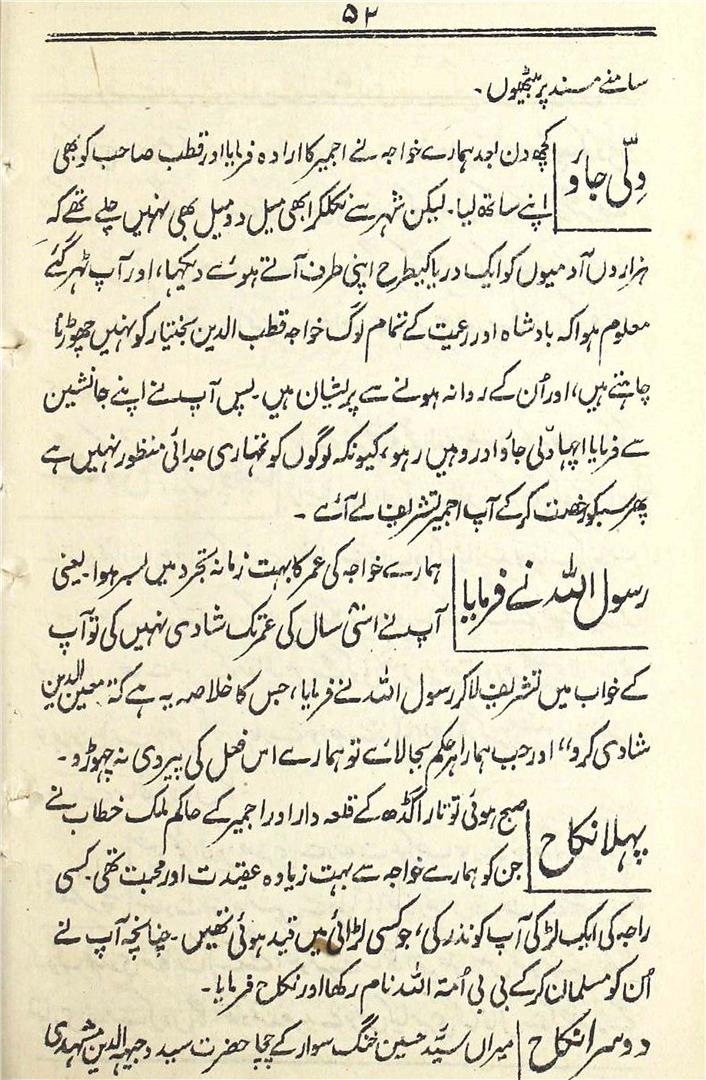 ۵۲
سامنے مسند پر بیٹھیوں۔
دِلّی جاؤ
کچھ دن بعد ہمارے خواجہ نے اجمیر کا ارادہ فرمایا اور قطب صاحب کو بھی
اپنے ساتھ لیا۔ لیکن شہر سے نکلکر ابھی میل دو میل بھی نہیں چلے تھے کہ
ہزاروں آدمیوں کو ایک دریا کیطرح اپنی طرف آتے ہوئے دیکھا، اور آپ ٹہر گئے
معلوم ہوا کہ بادشاہ اور رعیت کے تمام لوگ خواجہ قطب الدین بختیار کو نہیں چھوڑنا
چاہتے ہیں، اور اُن کے روانہ ہونے سے پریشان ہیں۔ پس آپ نے اپنے جانشین
سے فرمایا اچہا دِلّی جاؤ اور وہیں رہو، کیونکہ لوگوں کو تمہاری جدائی منظور نہیں ہے
پھر سبکو رخصت کرکے آپ اجمیر تشریف لے آئے۔
رسول اللہ نے فرمایا
ہمارے خواجہ کی عمر کا بہت زمانہ تجرد میں بسر ہوا۔ یعنی
آپ نے اسّی سال کی عمر تک شادی نہیں کی تو آپ
کے خواب میں تشریف لا کر رسول اللہ نے فرمایا، جس کا خلاصہ یہ ہے کہ "معین الدین
شادی کرو" اور جب ہمارا ہر حکم بجالائے تو ہمارے اس فعل کی پیروی نہ چھوڑو۔
پہلا نکاح
صبح ہوئی تو تاراگڈھ کے قلعہ دار اور اجمیر کے حاکم ملک خطاب نے
جن کو ہمارے خواجہ سے بہت زیادہ عقیدت اور محبت تھی۔ کسی
راجہ کی ایک لڑکی آپ کو نذر کی، جو کسی لڑائی میں قید ہوئی تھیں۔ چنانچہ آپ نے
اُن کو مسلمان کرکے بی بی اُمۃ اللہ نام رکھا اور نکاح فرمایا۔
دوسرا نکاح
میراں سیّد حسین خنگ سوار کے چچا حضرت سید وجیہہ الدین مشہدی